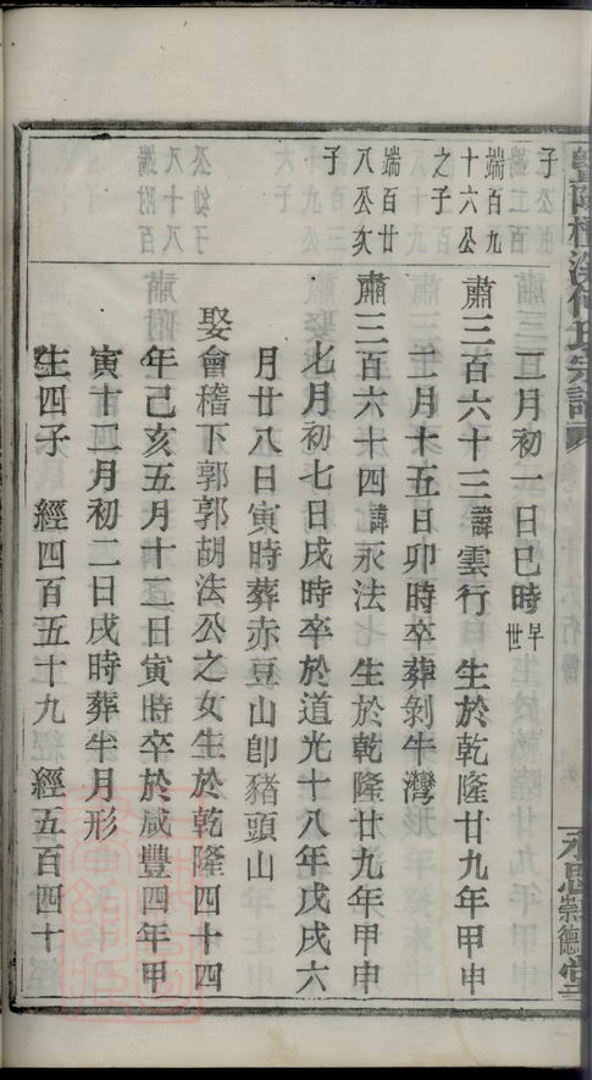 子
二月初一日巳時早世
端百九
十六公
之子
肅三百六十三諱雲行 生於乾隆廿九年甲申
二月十五日卯時卒葬剝牛灣
端百廿
八公次
子
肅三百六十四諱永法 生於乾隆廿九年甲申
七月初七日戌時卒於道光十八年戊戌六
月廿八日寅時葬赤豆山卽豬頭山
娶會稽下郭郭胡法公之女生於乾隆四十四
年己亥五月十二日寅時卒於咸豐四年甲
寅十二月初二日戌時葬半月形
生四子 經四百五十九 經五百四十
永思崇德堂